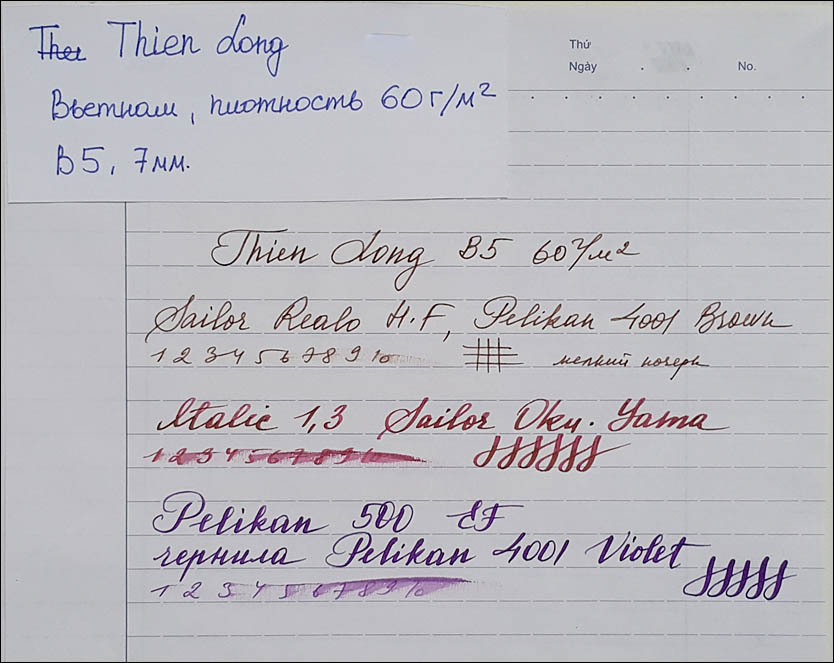 Thien Long
Вьетнам, плотность 60 г/м²
B5, 7мм.
Thứ
Ngày . . No.
Thien Long B5 60 г/м²
Sailor Realo H.F, Pelikan 4001 Brown
1 2 3 4 5 6 7 8 9 10 мелкий почерк
Italic 1,3 Sailor Oku. Yama
1 2 3 4 5 6 7 8 9 10
Pelikan 500 EF
чернила Pelikan 4001 Violet
1 2 3 4 5 6 7 8 9 10